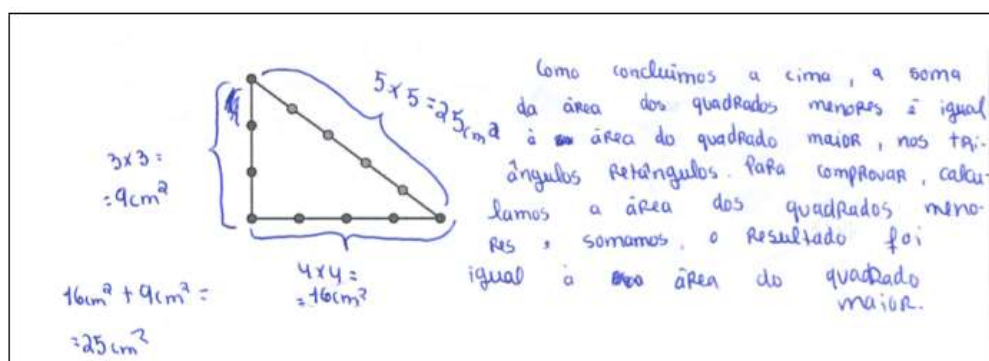 3x3=
=9cm²
5x5=25cm²
4x4=
=16cm²
16cm² + 9cm² =
=25cm²
Como concluimos a cima, a soma
da área dos quadrados menores é igual
à área do quadrado maior, nos tri-
ângulos retângulos. Para comprovar, calcu-
lamos a área dos quadrados meno-
res, somamos, o resultado foi
igual à área do quadrado
maior.